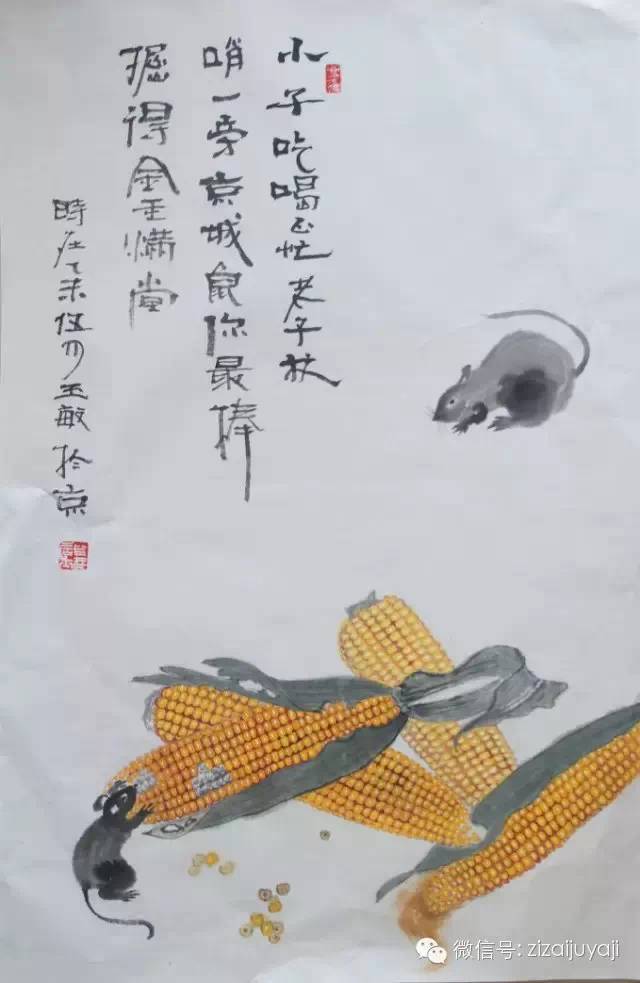 小子吃喝正忙老子放
哨一旁京城鼠你最棒
掘得金玉滿堂
時在乙未伍月王敏於京
微信号: zizaijuyaji